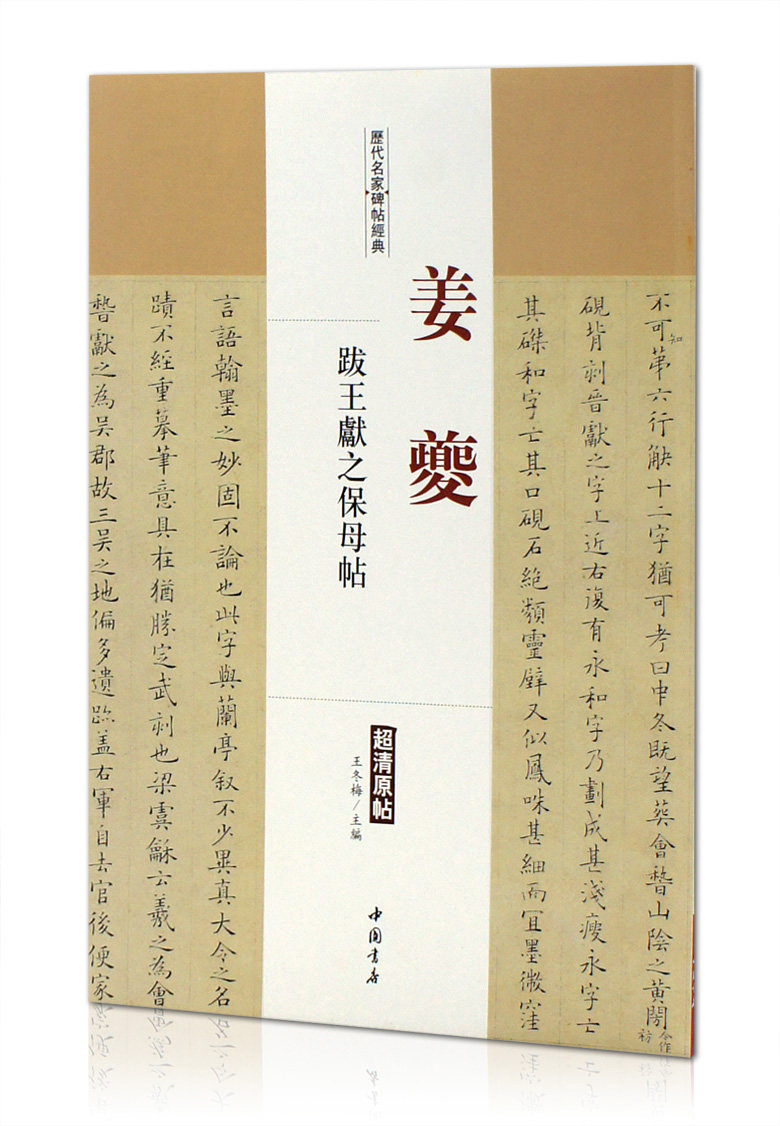 不可知苐六行觖十二字猶可考曰中冬既望葬會嵇山陰之黄閍今作祊
硯背刻晉獻之字上近右復有永和字乃劃成甚淺瘦永字亡
其磔和字亡其口硯石絶類靈壁又似鳳咮甚細而冝墨微窪
歷代名家碑帖經典
姜夔
跋王獻之保母帖
超清原帖
王冬梅/主編
中国书店
言語翰墨之妙固不論也此字與蘭亭叙不少異真大令之名
蹟不經重摹筆意具在猶勝定武刻也梁虞龢云羲之為會
嵇獻之為吳郡故三吳之地偏多遺跡盖右軍自去官後便家